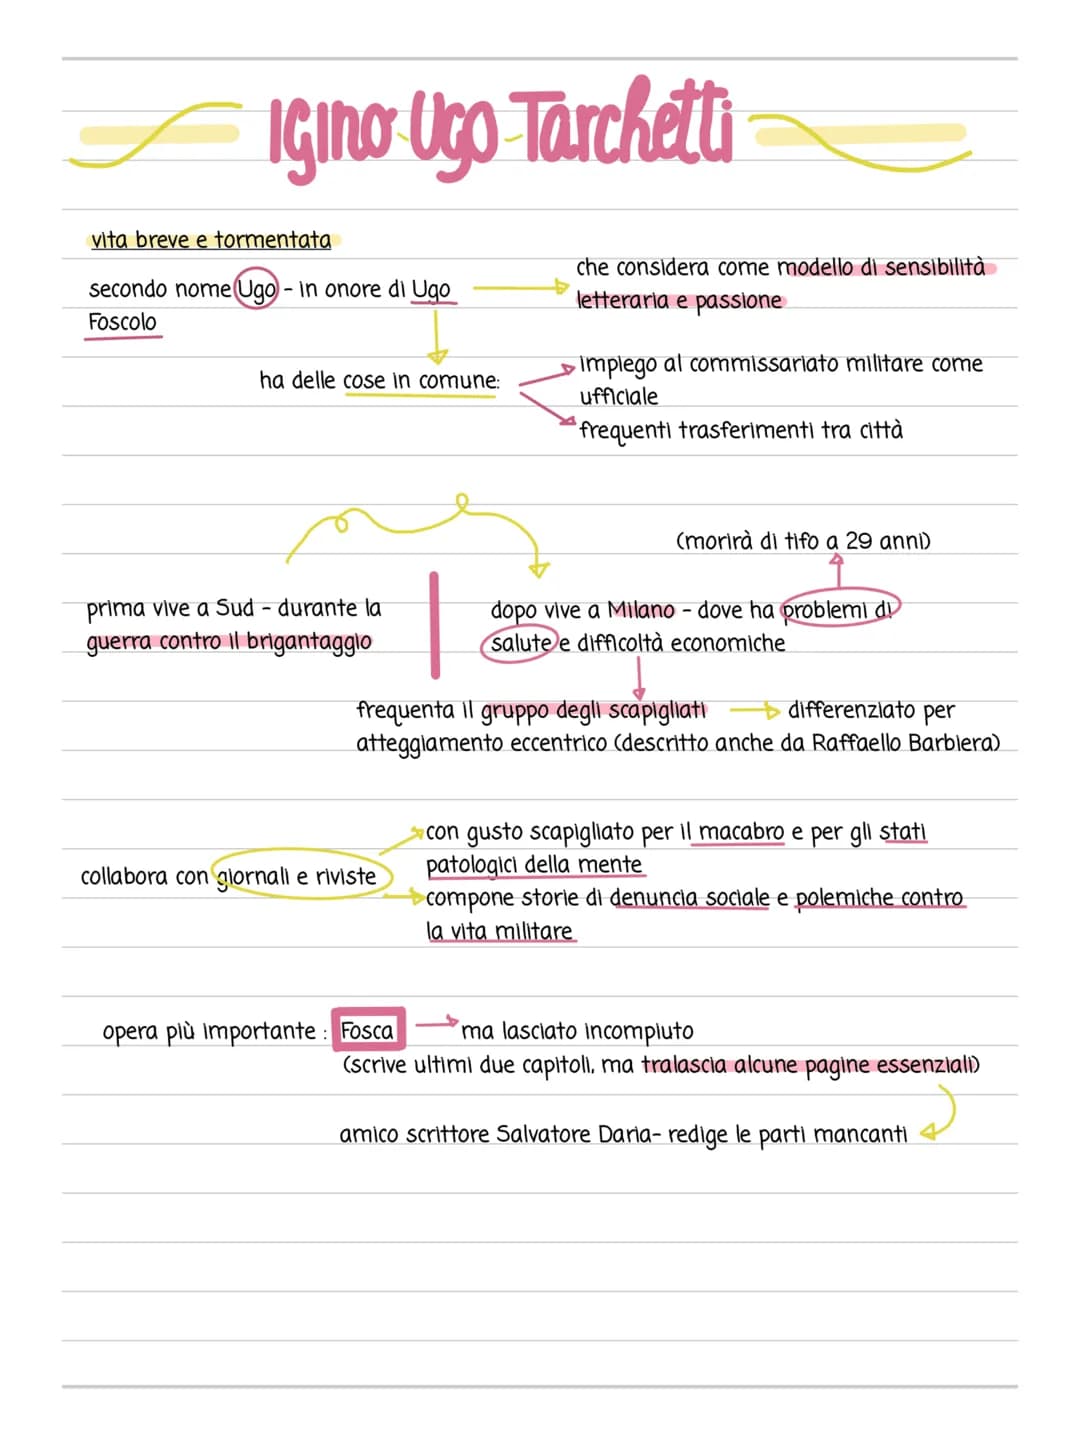 Igino Ugo Tarchetti
vita breve e tormentata
secondo nome Ugo - in onore di Ugo
Foscolo
che considera come modello di sensibilità
letteraria e passione
ha delle cose in comune:
impiego al commissariato militare come
ufficiale
frequenti trasferimenti tra città
(morirà di tifo a 29 anni)
prima vive a Sud - durante la
guerra contro il brigantaggio
dopo vive a Milano - dove ha problemi di
salute e difficoltà economiche
frequenta il gruppo degli scapigliati
differenziato per
atteggiamento eccentrico (descritto anche da Raffaello Barbiera)
collabora con giornali e riviste
con gusto scapigliato per il macabro e per gli stati
patologici della mente
compone storie di denuncia sociale e polemiche contro
la vita militare
opera più importante : Fosca
ma lasciato incompiuto
(scrive ultimi due capitoli, ma tralascia alcune pagine essenziali)
amico scrittore Salvatore Daria- redige le parti mancanti